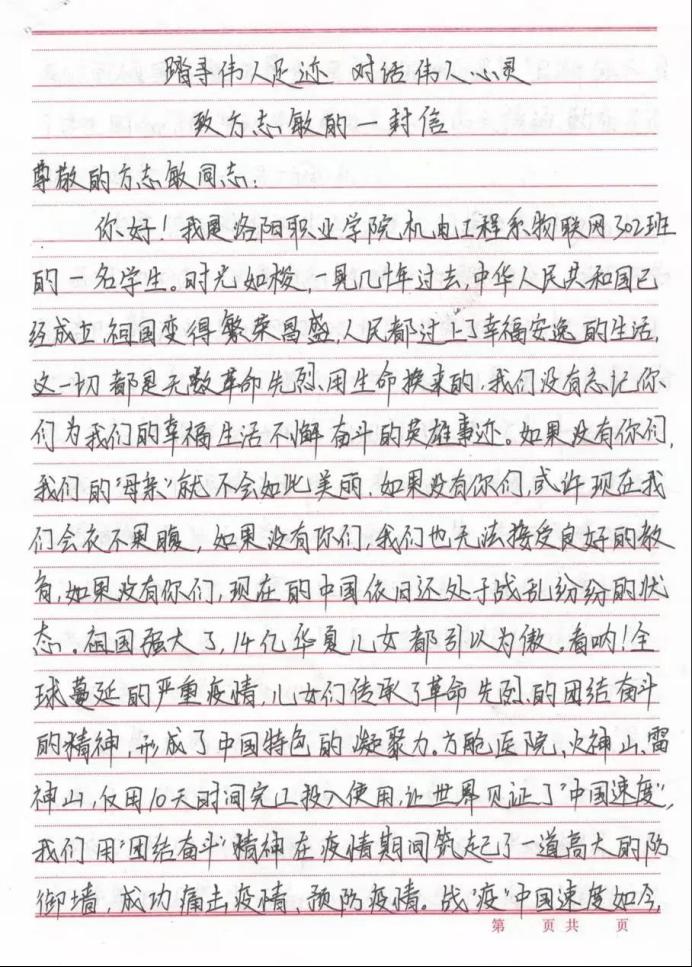 踏寻伟人足迹 对话伟人心灵
致方志敏的一封信
尊敬的方志敏同志:
你好!我是洛阳职业学院机电工程系物联网302班
的一名学生。时光如梭,一晃几十年过去,中华人民共和国已
经成立,祖国变得繁荣昌盛,人民都过上了幸福安逸的生活,
这一切都是无数革命先烈用生命换来的,我们没有忘记你
们为我们的幸福生活不懈奋斗的英雄事迹。如果没有你们,
我们的“母亲”就不会如此美丽,如果没有你们,或许现在我
们会衣不果腹,如果没有你们,我们也无法接受良好的教
育,如果没有你们,现在的中国依旧还处于战乱纷纷的状
态。祖国强大了,14亿华夏儿女都引以为傲。看呐!全
球蔓延的严重疫情,儿女们传承了革命先烈的团结奋斗
的精神,形成了中国特色的凝聚力。方舱医院、火神山、雷
神山,仅用10天时间完工投入使用,让世界见证了“中国速度”,
我们用“团结奋斗”精神在疫情期间筑起了一道高大的防
御墙,成功痛击疫情、预防疫情。战“疫”中国速度如今,
第 页 共 页